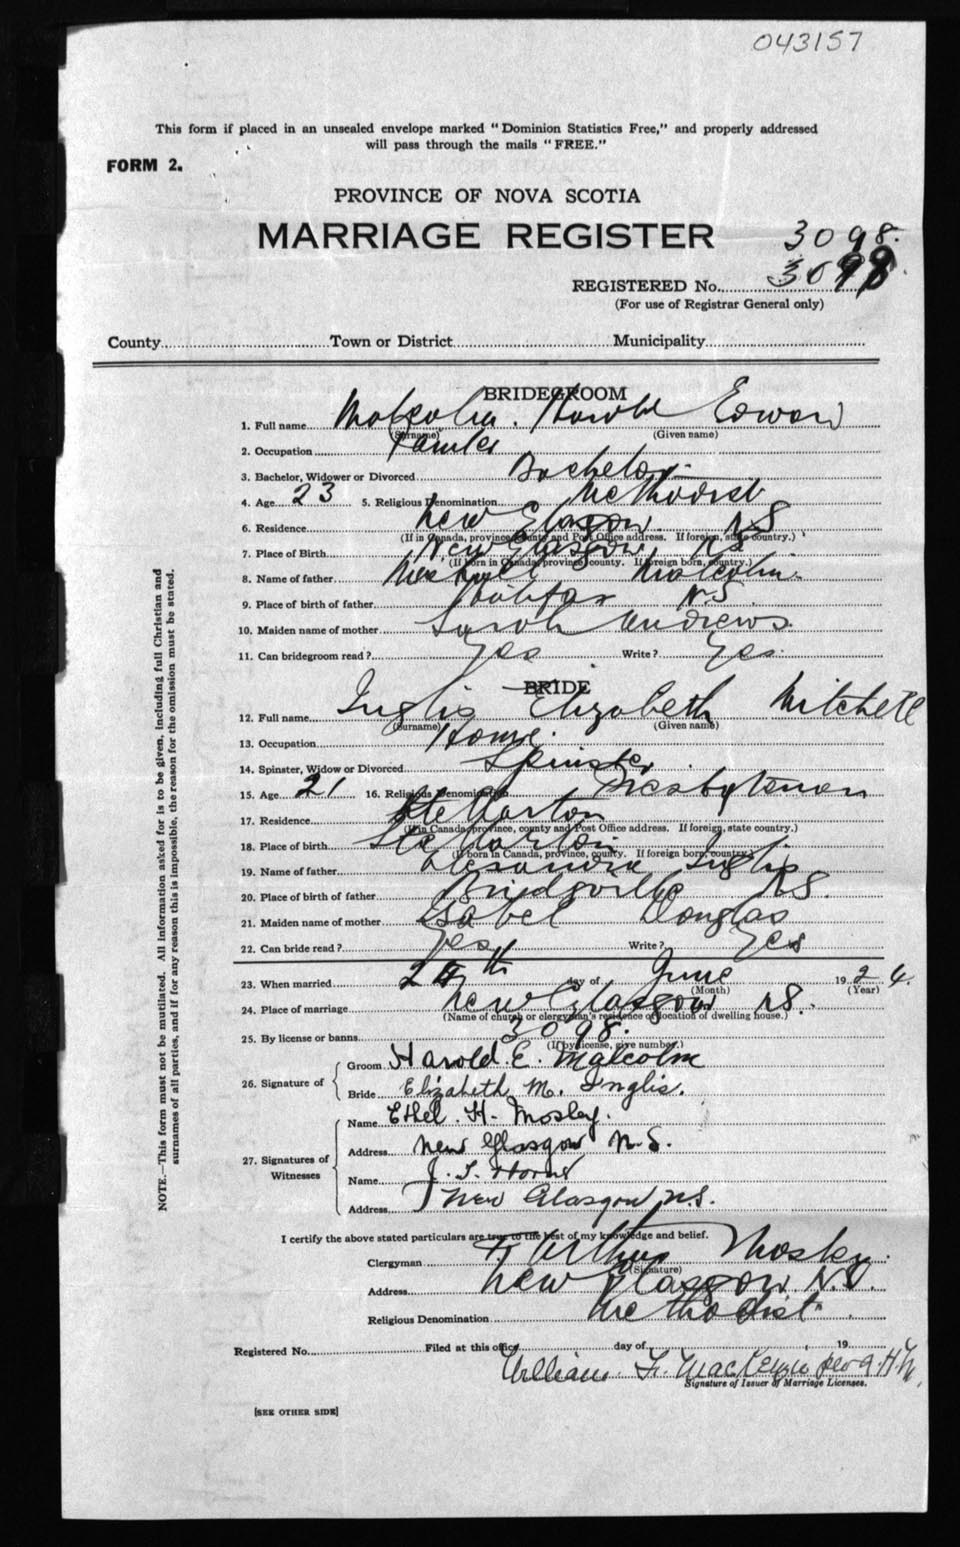 043157
This form if placed in an unsealed envelope marked "Dominion Statistics Free," and properly addressed
will pass through the mails "FREE."
FORM 2.
PROVINCE OF NOVA SCOTIA
MARRIAGE REGISTER
3098.
REGISTERED No. 3098.
(For use of Registrar General only)
County Town or District Municipality
BRIDEGROOM
1. Full name Malcolm. Harold Edward
(Surname) (Given name)
2. Occupation
3. Bachelor, Widower or Divorced Bachelor
4. Age 23 5. Religious Denomination Methodist
6. Residence New Glasgow NS
(If in Canada, province, county and Post Office address. If foreign, state country.)
7. Place of Birth New Glasgow NS
(If born in Canada, province, county. If foreign born, country.)
8. Name of father Malcolm
9. Place of birth of father Halifax N.S.
10. Maiden name of mother Sarah Andrews
11. Can bridegroom read? Yes Write? Yes
BRIDE
12. Full name Inglis Elizabeth Mitchell
(Surname) (Given name)
13. Occupation Home.
14. Spinster, Widow or Divorced Spinster
15. Age 21 16. Religious Denomination Presbyterian
17. Residence Stellarton
(If in Canada, province, county and Post Office address. If foreign, state country.)
18. Place of birth Stellarton
(If born in Canada, province, county. If foreign born, country.)
19. Name of father Inglis
20. Place of birth of father Bridgeville NS.
21. Maiden name of mother Isabel Douglas
22. Can bride read? Yes Write? Yes
23. When married day of June 1924
(Month) (Year)
24. Place of marriage New Glasgow NS.
(Name of church or clergyman's residence or location of dwelling house.)
25. By license or banns 3098.
(If by license, give number.)
26. Signature of
Groom Harold E. Malcolm
Bride Elizabeth M. Inglis.
27. Signatures of Witnesses
Name Ethel. H. Mosley.
Address New Glasgow N.S.
Name
Address New Glasgow N.S.
I certify the above stated particulars are true to the best of my knowledge and belief.
Clergyman Arthur Mosley.
(Signature)
Address New Glasgow N.S.
Religious Denomination Methodist
Registered No. Filed at this office day of , 19
William F. MacKenzie
Signature of Issuer of Marriage Licenses.
[SEE OTHER SIDE]
NOTE.—This form must not be mutilated. All information asked for is to be given, including full Christian and
surnames of all parties, and if for any reason this is impossible, the reason for the omission must be stated.